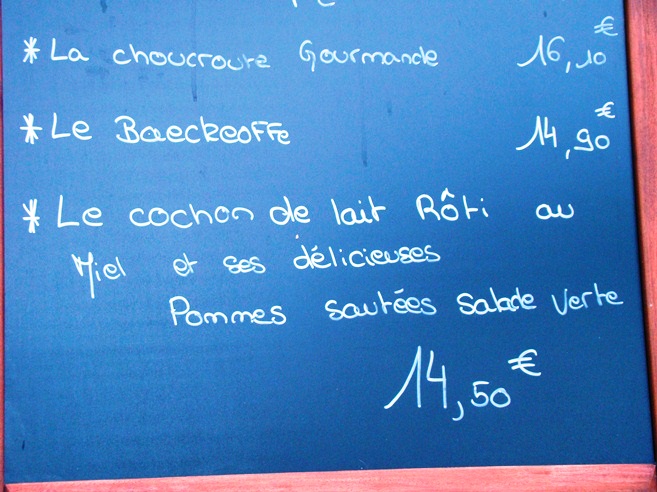 * La choucroute Gourmande 16,10€
* Le Baeckeoffe 14,90€
* Le cochon de lait Rôti au
Miel et ses délicieuses
Pommes sautées salade verte
14,50€